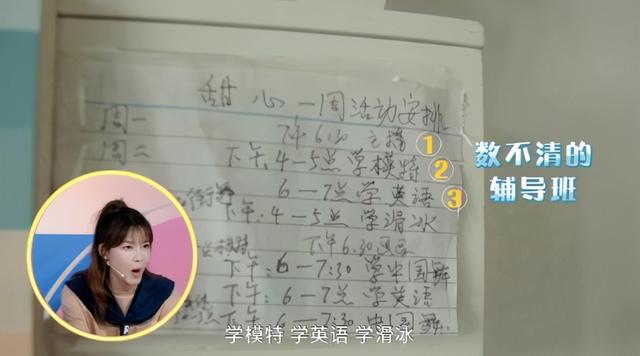 甜心一周活动安排
周一 下午6:30 主播 ①
周二 下午4-5点学模特 ②
6-7点学英语 ③
下午:4-5点 学滑冰
下午6:30
下午:6-7:30 学中国舞
下午:6-7点学英语
下午 6-7:30 中国舞.
数不清的
辅导班
学模特 学英语 学滑冰